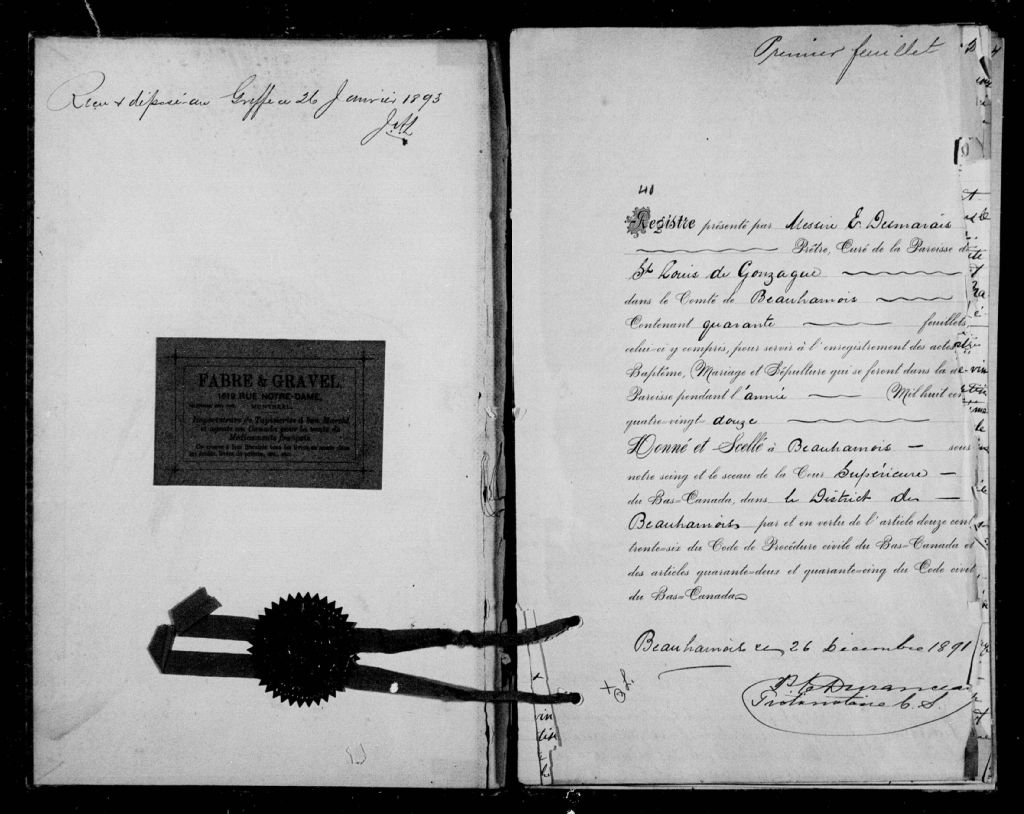 Recu & déposé au Greffe ce 26 Janvier 1893
FABRE & GRAVEL
1619 RUE NOTRE-DAME,
MONTREAL
Importateurs de Tapisseries à bon Marché
et agents au Canada pour la vente de
Médicaments français.
Premier feuillet
40
Registre présenté par Messire E. Desmarais
Prêtre, Curé de la Paroisse de
St Louis de Gonzague
dans le Comté de Beauharnois
Contenant quarante feuillets,
celui-ci y compris, pour servir à l'enregistrement des actes de
Baptême, Mariage et Sépulture qui se feront dans la
Paroisse pendant l'année Mil huit cent
quatre-vingt-douze
Donné et Scellé à Beauharnois sous
notre seing et le sceau de la Cour Supérieure
du Bas-Canada, dans le District de
Beauharnois par et en vertu de l'article douze cent
trente-six du Code de Procédure civile du Bas-Canada et
des articles quarante-deux et quarante-cinq du Code civil
du Bas-Canada
Beauharnois ce 26 Décembre 1891
Protonotaire C. S.